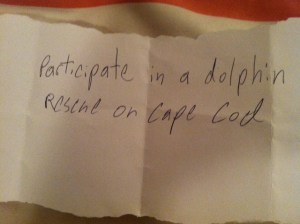 Participate in a dolphin
Rescue on Cape Cod